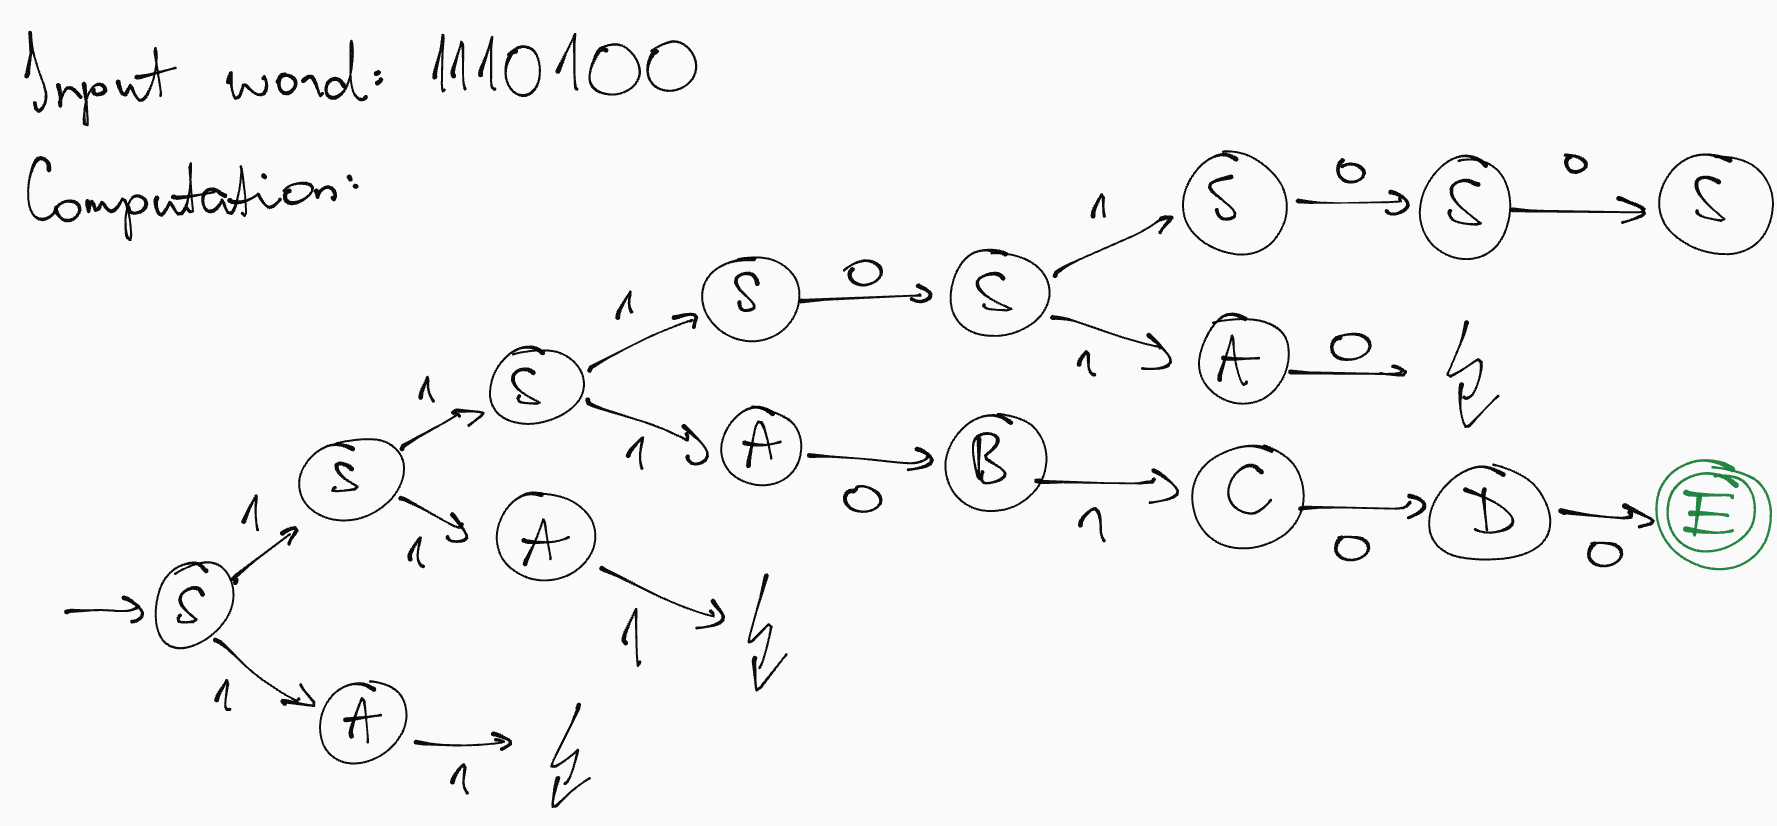 Input word: 1110100
Computation:
1 S 0 S 0 S
1 S 0 S
1 A 0
1 S
1 A 0 B 1 C 0 D 0 E
1 S
1 A 1
S
1 A 1